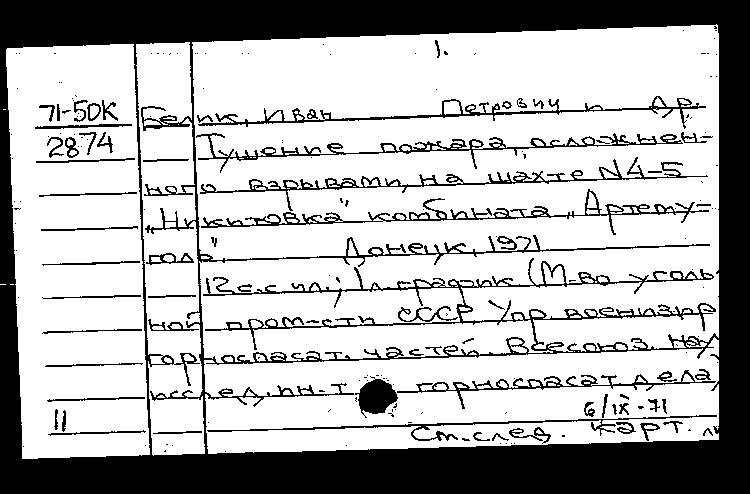 1.
71-50К Белик, Иван Петрович и др.
2874 Тушение пожара, осложнен-
ного взрывами, на шахте N4-5
„Никитовка" комбината „Артему-
голь". Донецк, 1971
12 с. с ил.; 1 л. график (М-во уголь-
ной пром-сти СССР Упр. военизир
горноспасат. частей. Всесоюз. на
исслед. ин-т горноспасат. дела)
11 6/IX-71
См. след. карт.